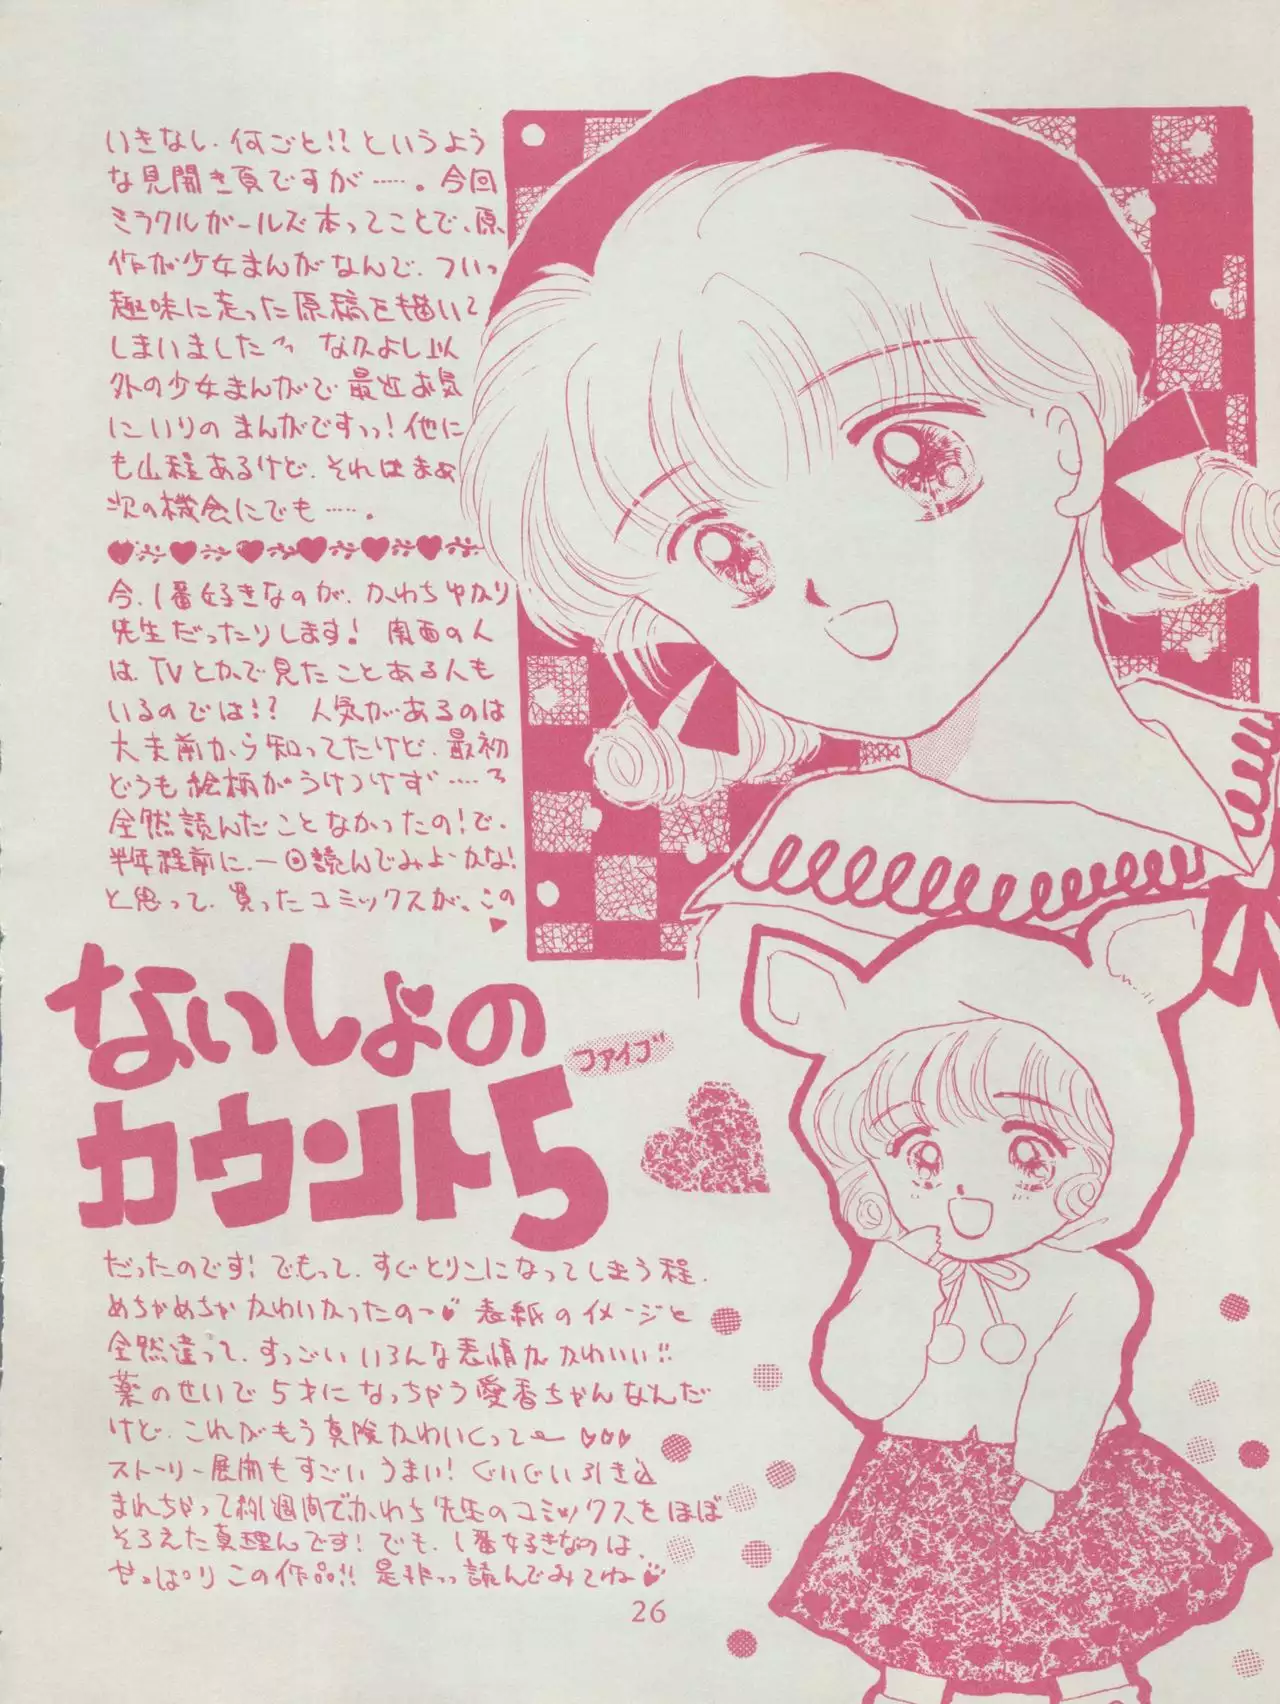 いきなし、何ごと!? というよう
な見開き頁ですが……。今回
ミラクルガールズ本ってことで、原
作が少女まんがなんで、ついっ
趣味に走った原稿を描いて
しまいました なかよし以
外の少女まんがで最近お気
にいりのまんがですっっ!他に
も山程あるけど、それはまぁ
次の機会にでも……。
今、1番好きなのが、かわちゆかり
先生だったりします! 関西の人
は、TVとかで見たことある人も
いるのでは!? 人気があるのは
大夫前から知ってたけど、最初
どうも絵柄がうけつけず……
全然読んだことなかったの!で、
半年程前に、一回読んでみよーかな!
と思って、買ったコミックスが、この
ないしょの
ファイブ
カウント5
だったのです! でもって、すぐとりこになってしまう程、
めちゃめちゃかわいかったの 表紙のイメージと
全然違って、すっごいいろんな表情がかわいい!!
薬のせいで5才になっちゃう愛香ちゃんなんだ
けど、これがもう真険かわいくって ♡♡♡
ストーリー展開もすごいうまい! ぐいぐい引き込
まれちゃって約1週間でかわち先生のコミックスをほぼ
そろえた真理んです! でも、1番好きなのは、
やっぱりこの作品!! 是非っっ読んでみてね
26